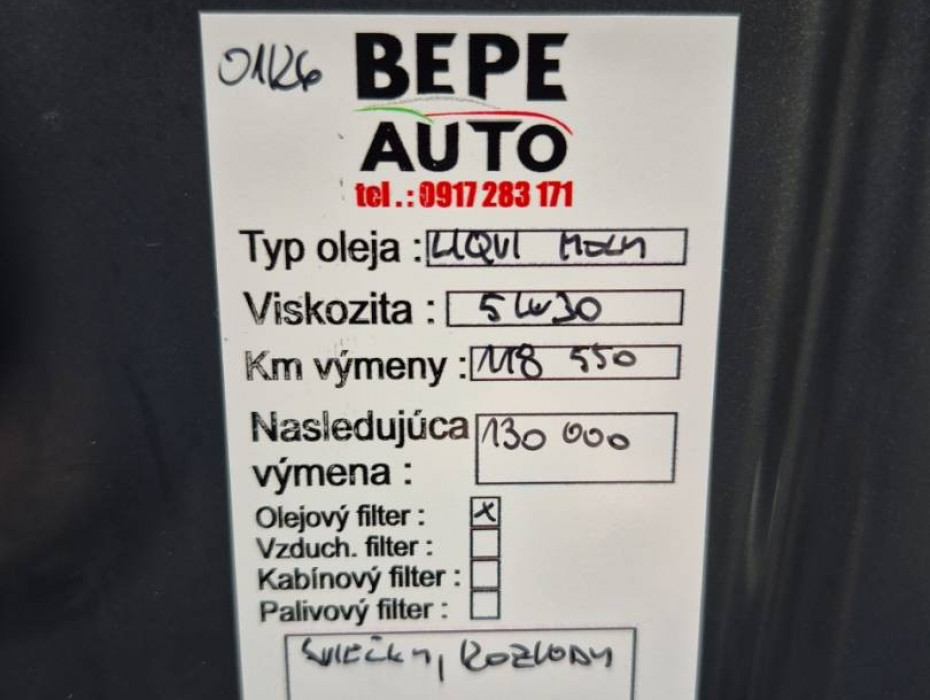 01/26 BEPE
AUTO
tel.: 0917 283 171
Typ oleja : LIQUI MOLY
Viskozita : 5W30
Km výmeny : 118 550
Nasledujúca 130 000
výmena :
Olejový filter : x
Vzduch. filter :
Kabínový filter :
Palivový filter :
SVIEČKY, ROZVODY